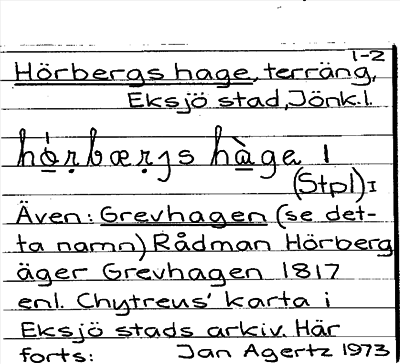 1-2
Hörbergs hage, terräng,
Eksjö stad, Jönk.l.
hó̱ṛbæṛjs hà̱ga 1
(Stpl) I
Även: Grevhagen (se det-
ta namn) Rådman Hörberg
äger Grevhagen 1817
enl. Chytreus' karta i
Eksjö stads arkiv. Här
forts: Jan Agertz 1973